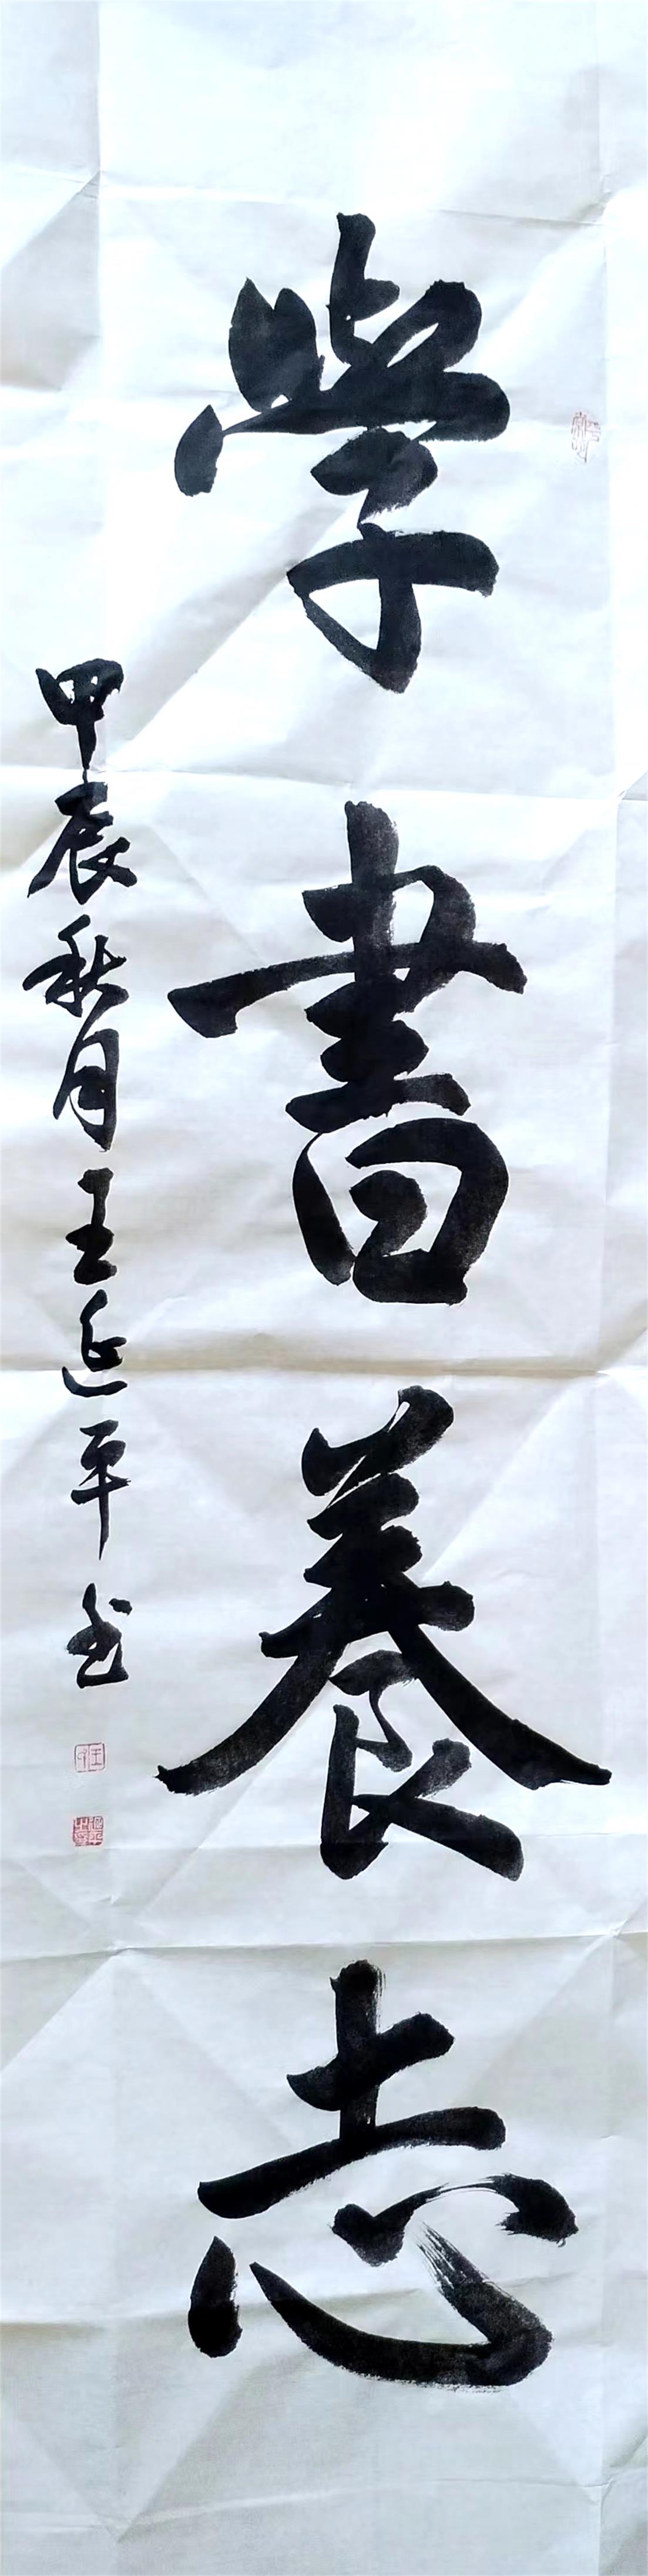 學書養志
甲辰秋月王延平书